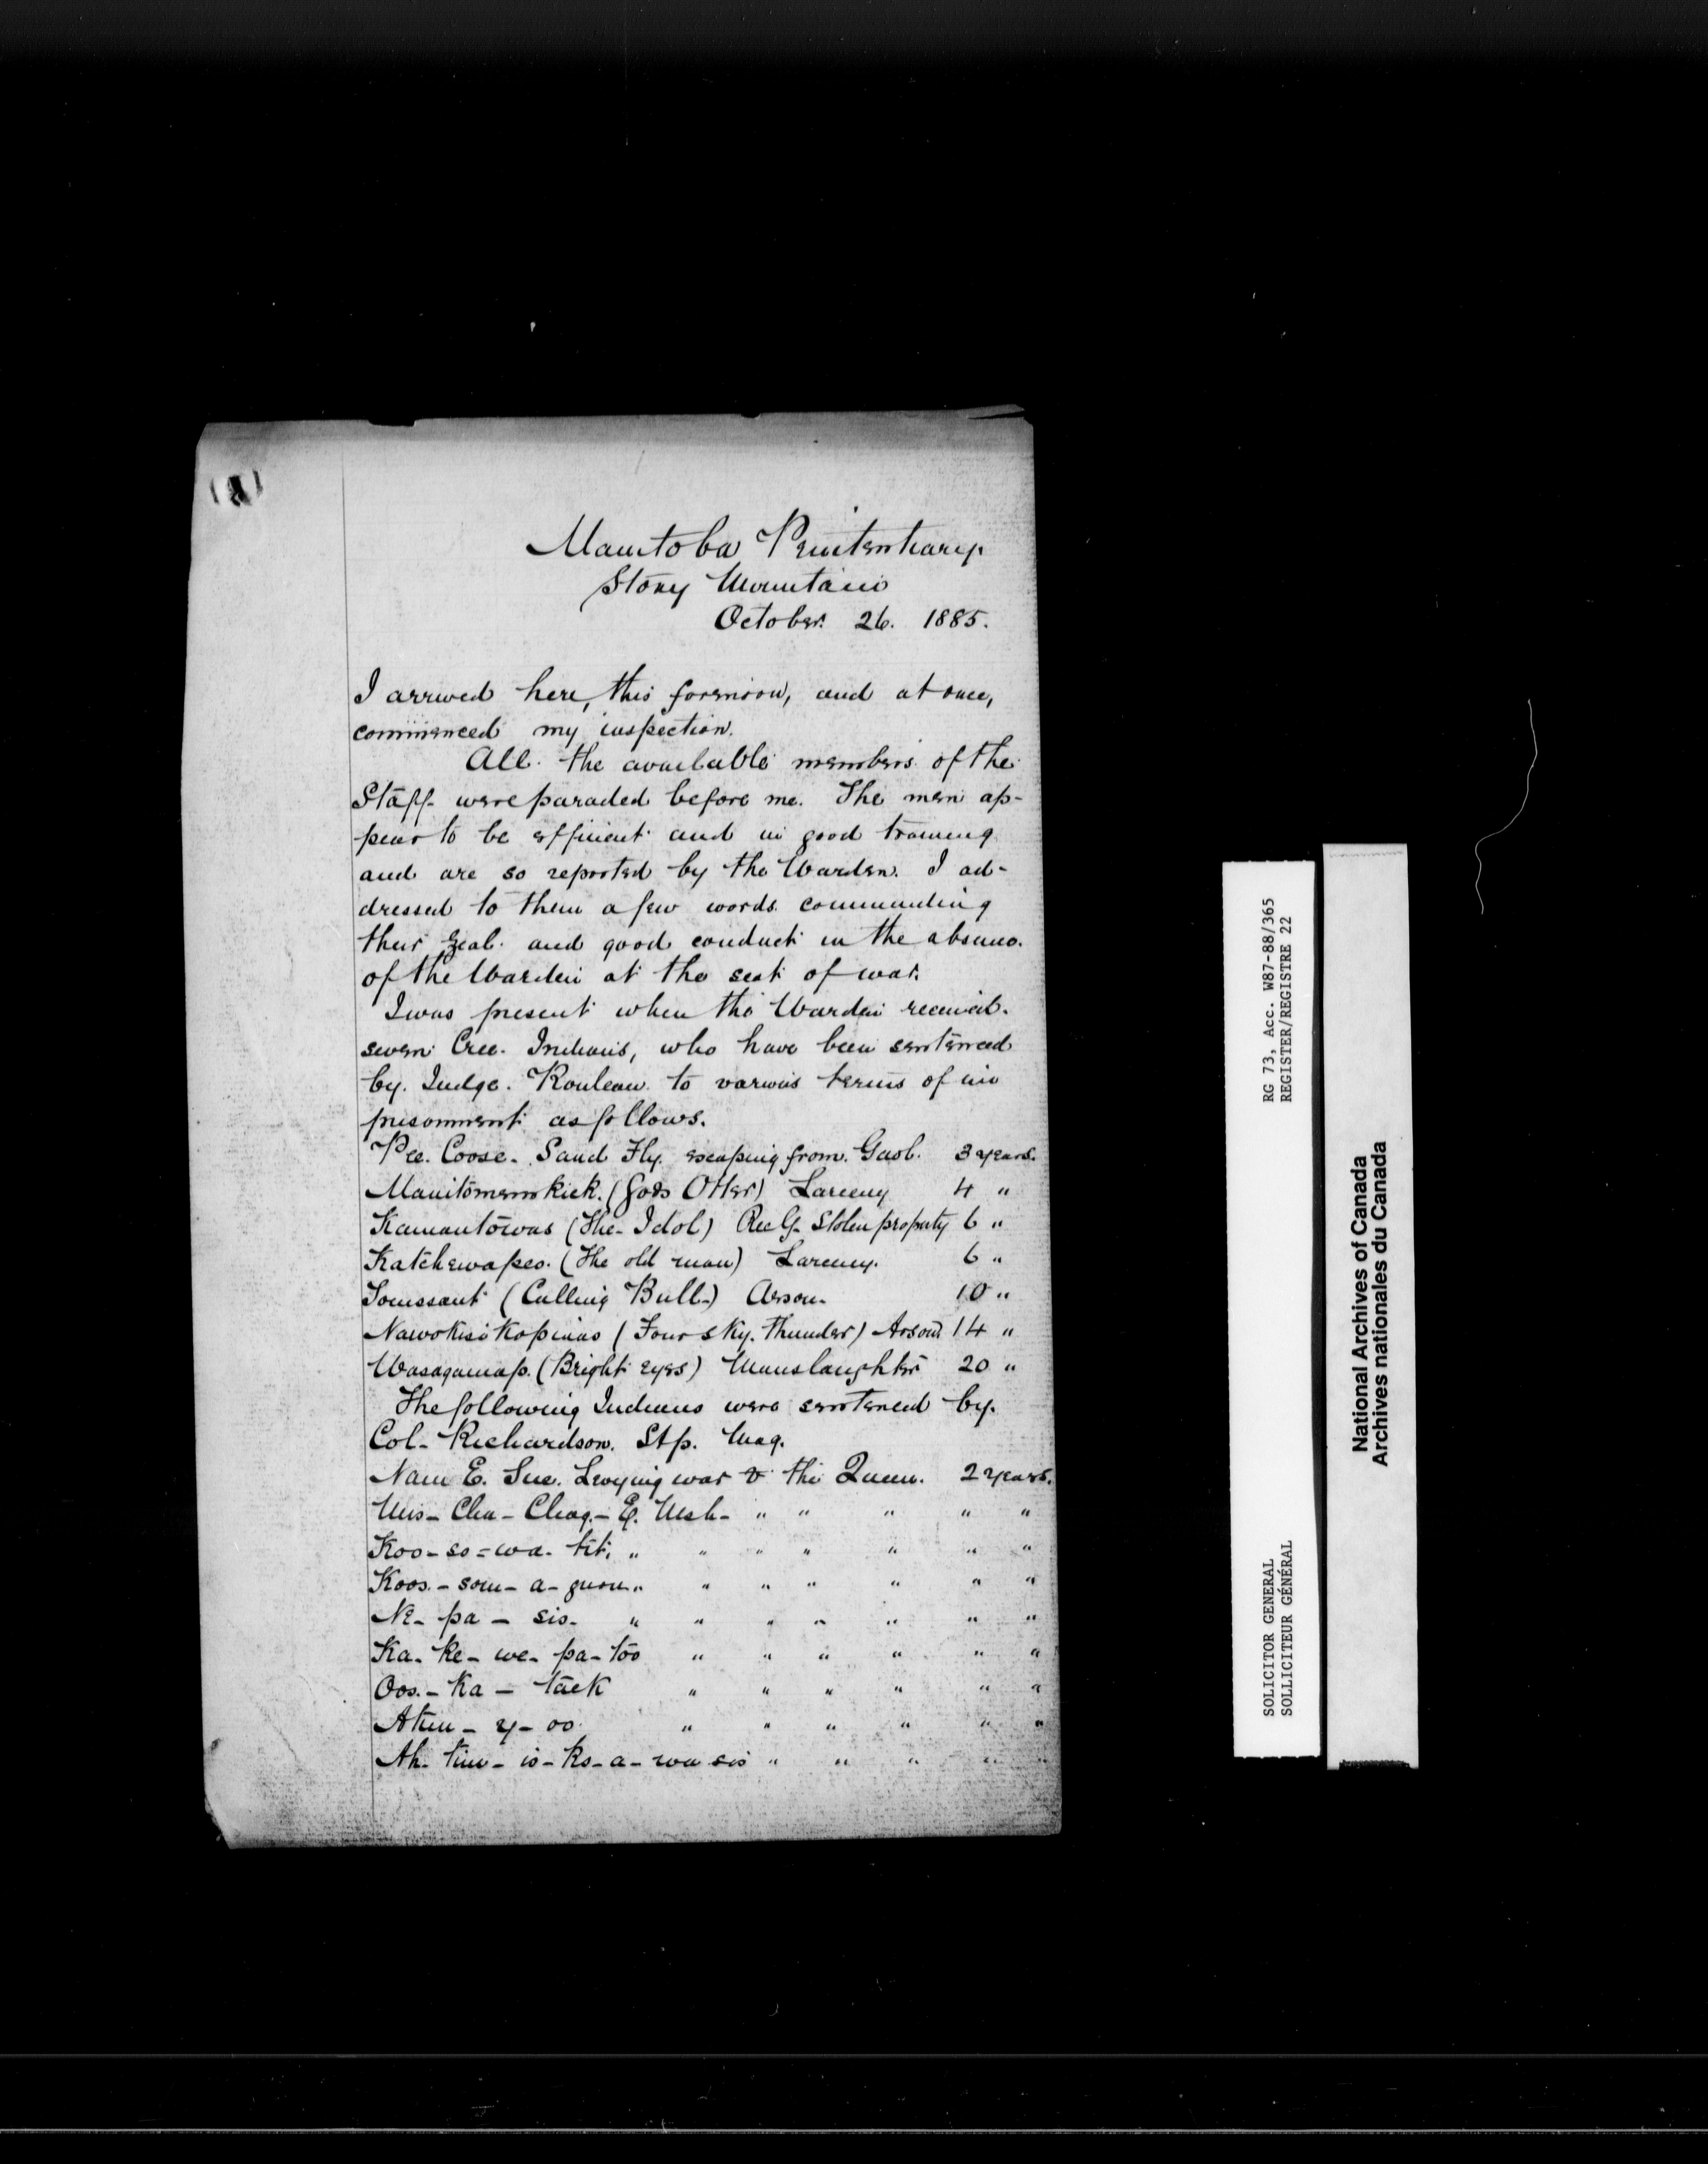 Manitoba Penitentiary
Stony Mountain
October 26. 1885.
I arrived here, this forenoon, and at once,
commenced my inspection.
All the available members of the
Staff were paraded before me. The men ap-
pear to be efficient and in good training
and are so reported by the Warden. I ad-
dressed to them a few words commending
their zeal and good conduct in the absence
of the Warden at the seat of war.
I was present when the Warden received
seven Cree Indians, who have been sentenced
by Judge Rouleau to various terms of im
prisonment as follows.
Pee. Coose. Sand Fly. escaping from Gaol. 3 years.
Manitomenskick. (Gods Otter) Larceny 4 "
Kamantowas (The Idol) Rec'g. Stolen property 6 "
Katchewapeo. (The old man) Larceny. 6 "
Toussant (Calling Bull) Arson. 10 "
Nawokisikopinas (Four sky. thunder) Arson 14 "
Wasagamap. (Bright eyes) Manslaughter 20 "
The following Indians were sentenced by.
Col. Richardson. Stp. Mag.
Nam E. Sue. Levying war v the Queen. 2 years.
Mis - Cha - Chag. - E. Mesh - " " " " "
Koo - so = wa - tit. " " " " " " "
Koos. - som - a - guon " " " " " " "
Ne - pa - sis. " " " " " " "
Ka - ke - we - pa - too " " " " " "
Oos. - Ka - tack " " " " " "
Atim - y - oo. " " " " " "
Ah - tim - is - ko - a - wa sis " " " " "
RG 73, Acc. W87-88/365
REGISTER/REGISTRE 22
SOLICITOR GENERAL
SOLLICITEUR GÉNÉRAL
National Archives of Canada
Archives nationales du Canada